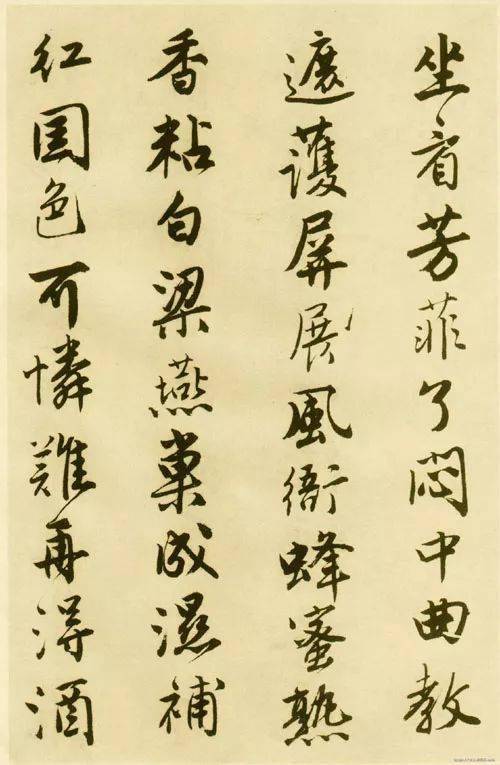 坐看芳菲了閟中曲教
遮護屏展風衙蜂蜜熟
香粘白梁燕巢成濕補
红国色可憐難再得酒